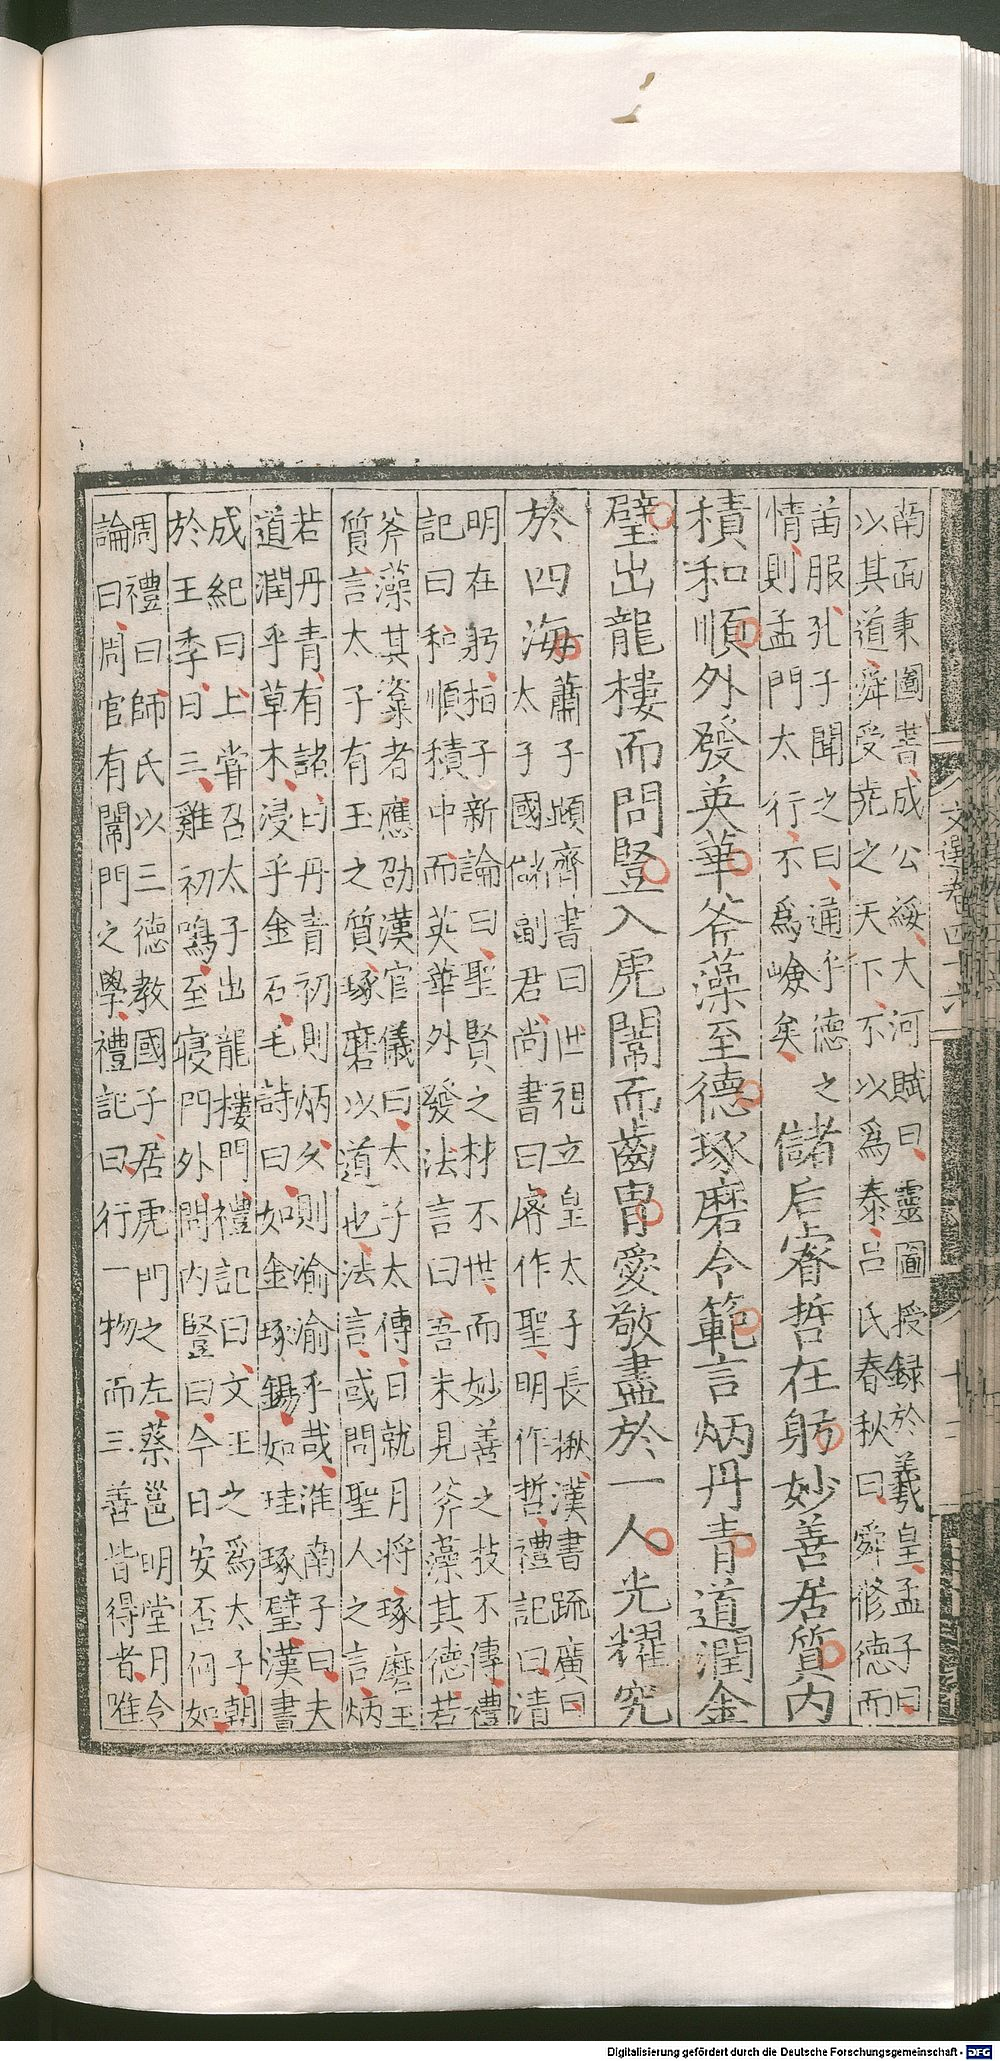 文選卷四十六
十二
南面秉圖菩成公綏大河賦曰靈圖授録於羲皇孟子曰
以其道舜受堯之天下不以爲泰吕氏春秋曰舜修德而
苗服孔子聞之曰通乎德之
情則孟門太行不爲嶮矣
儲后睿哲在躬妙善居質内
積和順外發英華斧藻至德琢磨令範言炳丹青道潤金
璧出龍樓而問豎入虎闈而齒胄愛敬盡於一人光耀究
於四海
蕭子顯齊書曰世祖立皇太子長懋漢書疏廣曰
太子國儲副君尚書曰睿作聖明作哲禮記曰清
明在躬桓子新論曰聖賢之材不世而妙善之技不傳禮
記曰和順積中而英華外發法言曰吾未見斧藻其德若
斧藻其楶者應劭漢官儀曰太子太傅日就月將琢磨玉
質言太子有玉之質琢磨以道也法言或問聖人之言炳
若丹青有諸曰丹青初則炳久則渝渝乎哉淮南子曰夫
道潤乎草木浸乎金石毛詩曰如金琢錫如珪琢璧漢書
成紀曰上嘗召太子出龍樓門禮記曰文王之爲太子朝
於王季日三雞初鳴至寢門外問内豎曰今日安否何如
周禮曰師氏以三德教國子居虎門之左蔡邕明堂月令
論曰周官有闈門之學禮記曰行一物而三善皆得者唯
Digitalisierung gefördert durch die Deutsche Forschungsgemeinschaft - DFG